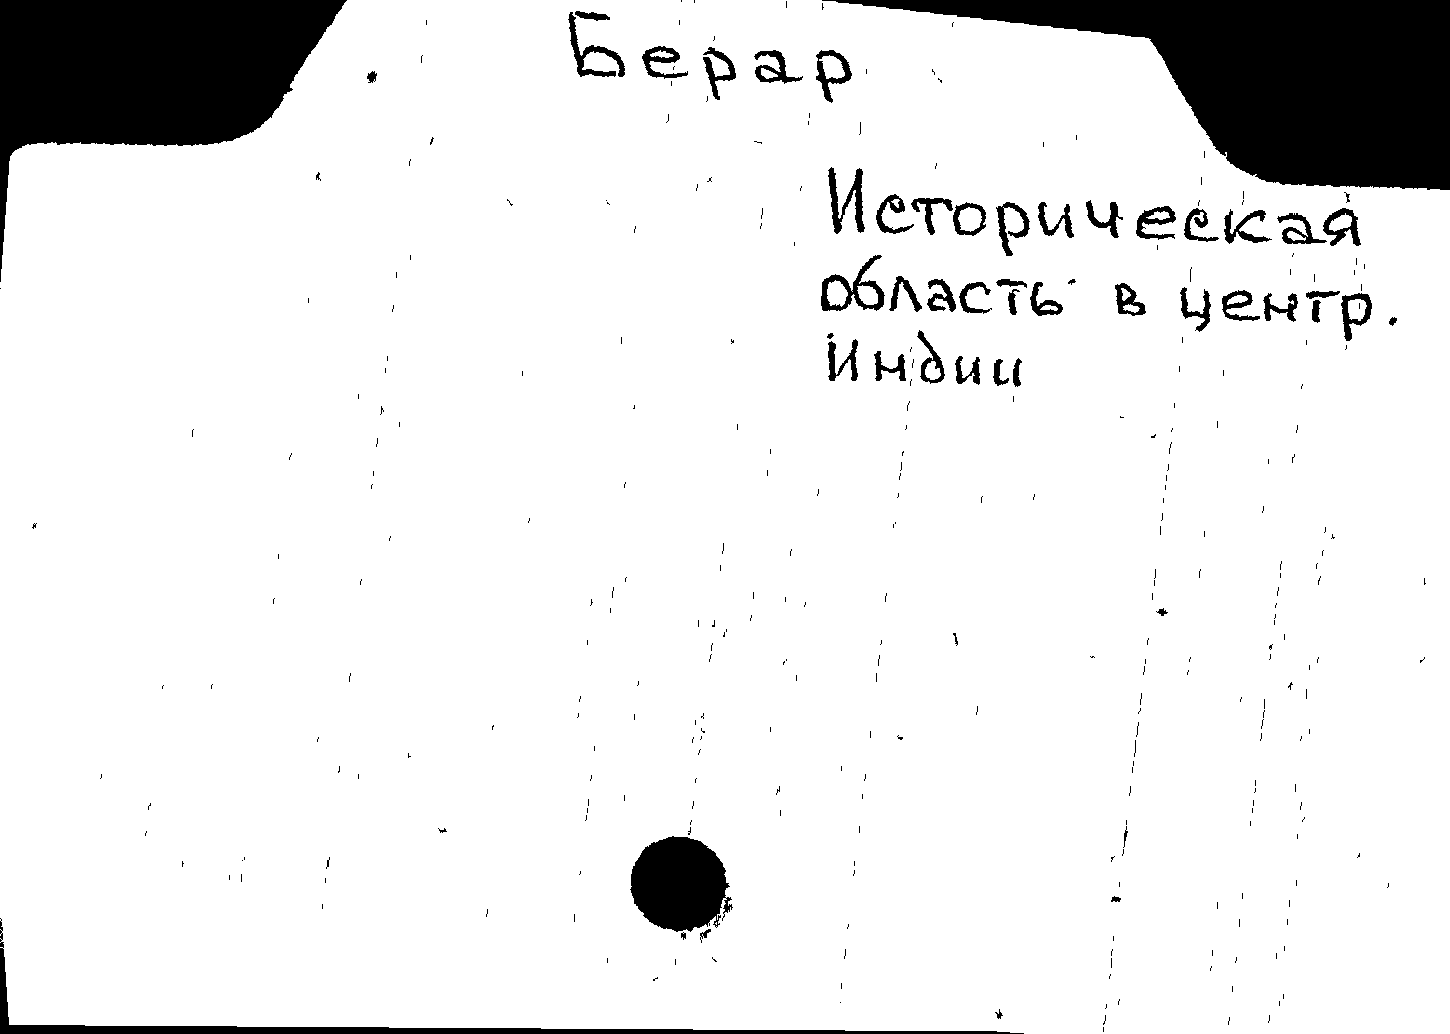 Берар
Историческая
область в центр.
Индии